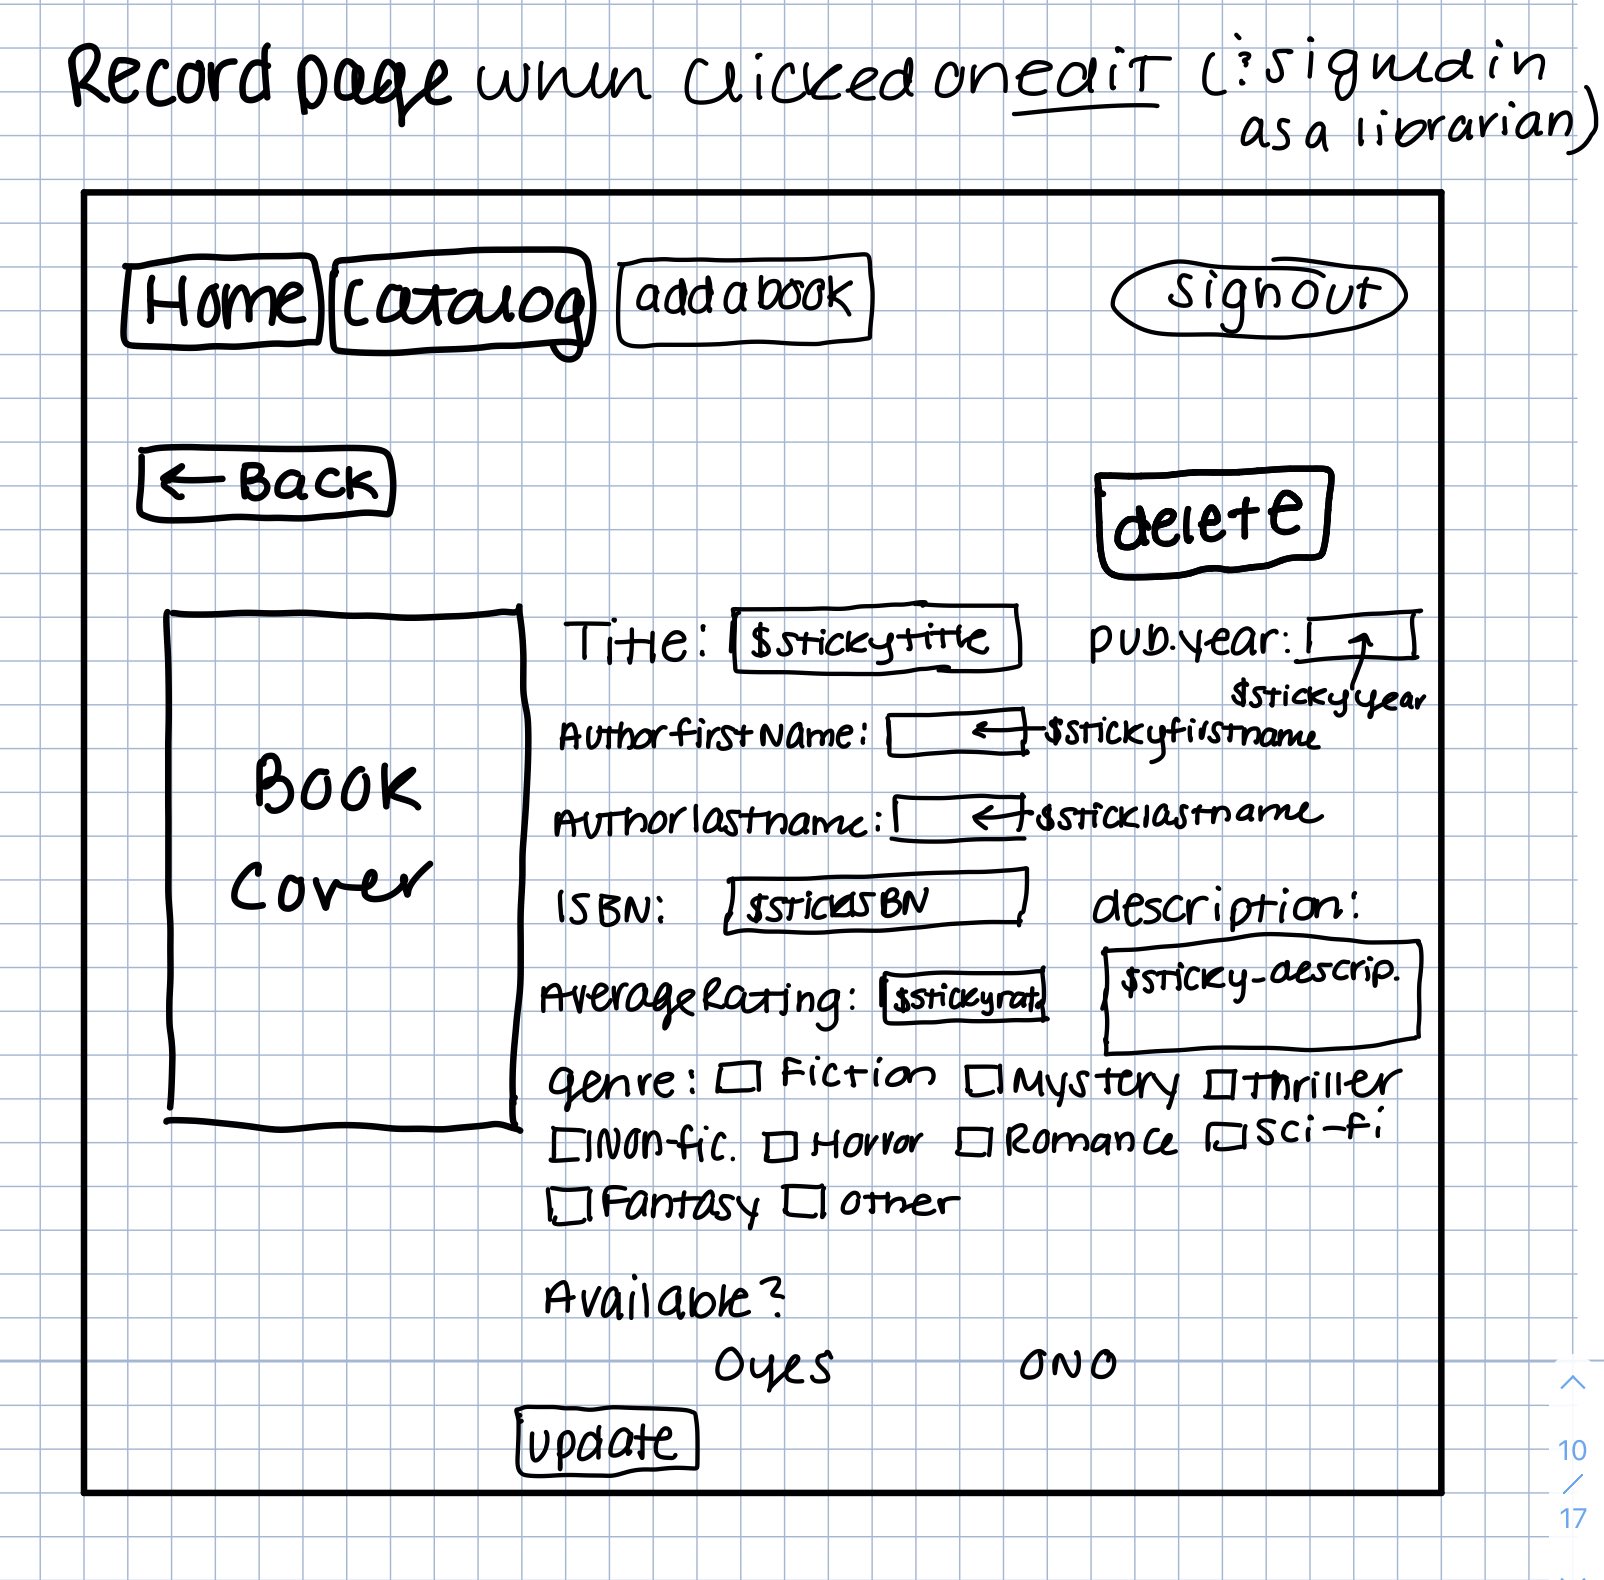 Record page when clicked on edit (: signed in
as a librarian)
Home Catalog add a book sign out
← Back
delete
Title: $stickytitle pub.year:
$stickyyear
Author first Name: ← $stickyfirstname
Author last name: ← $sticklastname
ISBN: $stickISBN description:
$sticky-descrip.
Average Rating: $stickyrat.
Book
Cover
genre: Fiction Mystery thriller
Non-fic. Horror Romance sci-fi
Fantasy other
Available?
yes NO
update
10
/
17